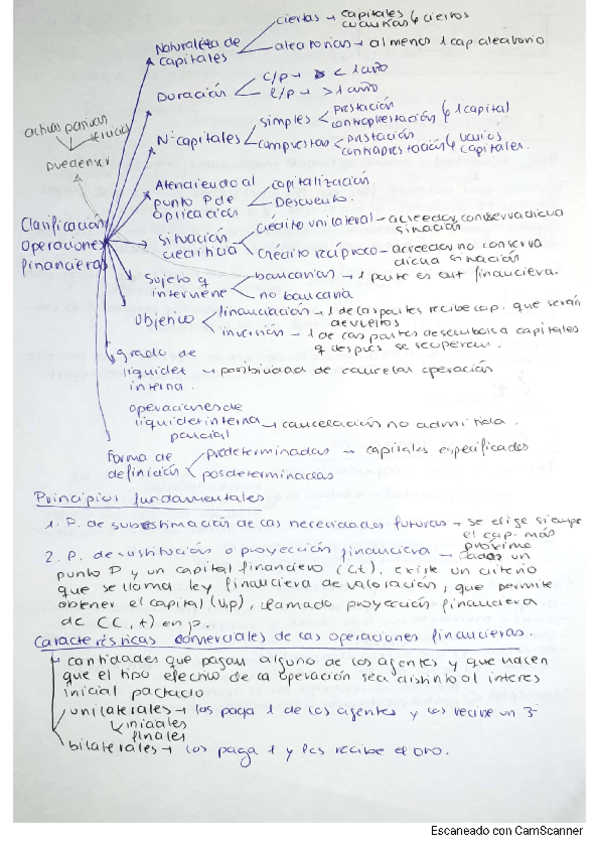 Naturaleza de capitales
ciertas → capitales cuantías y ciertos
aleatorias → al menos 1 cap aleatorio
Duración
c/p → < 1 año
l/p → > 1 año
activas pasivas
pueden ser
Nº capitales
simples → prestación contraprestación y 1 capital
compuestas → prestación contraprestación y varios capitales.
Atendiendo al punto P de aplicación
capitalización
Descuento.
Clasificación operaciones financieras
situación crediticia
crédito unilateral → acreedor conserva dicha situación
crédito recíproco → acreedor no conserva dicha situación
sujeto q interviene
bancarias → 1 parte es ent financiera.
no bancaria
Objetivo
financiación → 1 de las partes recibe cap. que serán devueltos
inversión → 1 de las partes desembolsa capitales q después se recuperan.
grado de liquidez interna.
→ posibilidad de cancelar operación
operaciones de liquidez interna parcial
→ cancelación no admitida.
Forma de definición
predeterminadas → capitales especificados
posdeterminadas
Principios fundamentales
1. P. de subestimación de las necesidades futuras → se elige siempre el cap. más próximo
2. P. de sustitución o proyección financiera → dados un
punto P y un capital financiero (C,t), existe un criterio
que se llama ley financiera de valoración, que permite
obtener el capital (V,p), llamado proyección financiera
de (C,t) en p.
Características comerciales de las operaciones financieras.
cantidades que pagan alguno de los agentes y que hacen
que el tipo efectivo de la operación sea distinto al interés
inicial pactado
unilaterales → los paga 1 de los agentes y los recibe un 3º
iniciales
finales
bilaterales → los paga 1 y los recibe el otro.
Escaneado con CamScanner